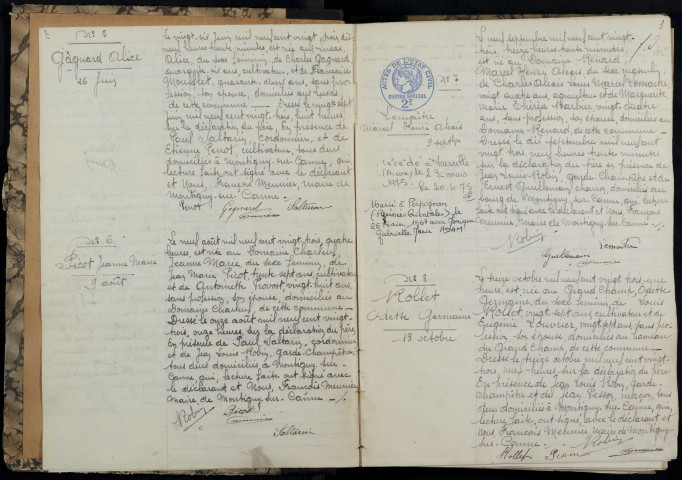 N° 5
Gagnard Alice
26 Juin
Le vingt-six juin mil neuf cent vingt-trois, dix
neuf heures trente minutes, est née aux Lucas,
Alice, du sexe féminin, de Charles Gagnard,
quarante six ans, cultivateur, et de Françoise
quarante deux ans, sans pro-
fession, son épouse, domiciliés aux Lucas,
de cette commune — Dressé le vingt sept
juin mil neuf cent vingt-trois, huit heures
sur la déclaration du père, en présence de
Paul Saltarin, cordonnier, et de
Etienne Penot, cultivateur, tous deux
domiciliés à Montigny-sur-Canne, qui,
lecture faite ont signé avec le déclarant
et Nous, François Meunier, maire de
Montigny-sur-Canne -
Penot Gagnard Saltarin
Meunier
N° 6
Picot Jeanne-Marie
9 août
Le neuf août mil neuf cent vingt-trois, quatre
heures, est née au Domaine Charleuf,
Jeanne-Marie du sexe féminin, de
Jean Marie Picot, trente sept ans, cultivateur
et de Antoinette Provost, vingt huit ans,
sans profession, son épouse, domiciliés au
Domaine Charleuf, de cette commune —
Dressé le onze août mil neuf cent vingt-
trois, onze heures, sur la déclaration du père,
En présence de Paul Saltarin, cordonnier
et de Jean Louis Robin, garde-champêtre,
tous deux domiciliés à Montigny-sur-
Canne, qui, lecture faite ont signé avec
le déclarant et Nous, François Meunier
maire de Montigny-sur-Canne -
Robin Picot
Meunier
Saltarin
3
ACTES DE L'ETAT CIVIL
PAPIER SPECIAL
2F
N° 7
Lemaître
Marcel Henri Alexis
9 septembre
Décédé à Marseille
le 23 mars
1975
Le 20.4.75
Marié à Perpignan
(Pyrénées Orientales) le
26 1961 avec
Gabrielle Jane ADAM
Le neuf septembre mil neuf cent vingt-
trois, treize heures trente minutes,
est né au Domaine Renard,
Marcel Henry Alexis, du sexe masculin,
de Charles Alexis Marcel Lemaître,
vingt quatre ans, cultivateur et de Marguerite
Marie Thérèse Barbier, vingt quatre
ans, sans profession, son épouse, domiciliés au
Domaine Renard, de cette commune —
Dressé le dix septembre mil neuf cent
vingt trois, neuf heures trente minutes
sur la déclaration du père, en présence de
Jean Louis Robin, garde Champêtre et de
Ernest Guillemain, charron, domiciliés au
bourg de Montigny-sur-Canne, qui, lecture
faite ont signé avec le déclarant et Nous, François
Meunier, maire de Montigny-sur-Canne.
Robin Lemaître
Guillemain
Meunier
N° 8
Rollet
Odette Germaine
13 octobre
Le treize octobre mil neuf cent vingt trois, une
heure, est née au Grand Champ, Odette
Germaine, du sexe féminin, de Louis
Rollet, vingt sept ans, cultivateur et de
Eugénie Louvrier, vingt sept ans, sans pro-
fession, son épouse, domiciliés au hameau
du Grand Champ de cette commune —
Dressé le treize octobre mil neuf cent vingt-
trois, neuf heures, sur la déclaration du père
En présence de Jean Louis Robin, Garde-
Champêtre et de Jean maçon, tous
deux domiciliés à Montigny-sur-Canne, qui,
lecture faite, ont signé, avec le déclarant et
Nous François Meunier, maire de Montigny-
sur-Canne -
Robin
Rollet
Meunier